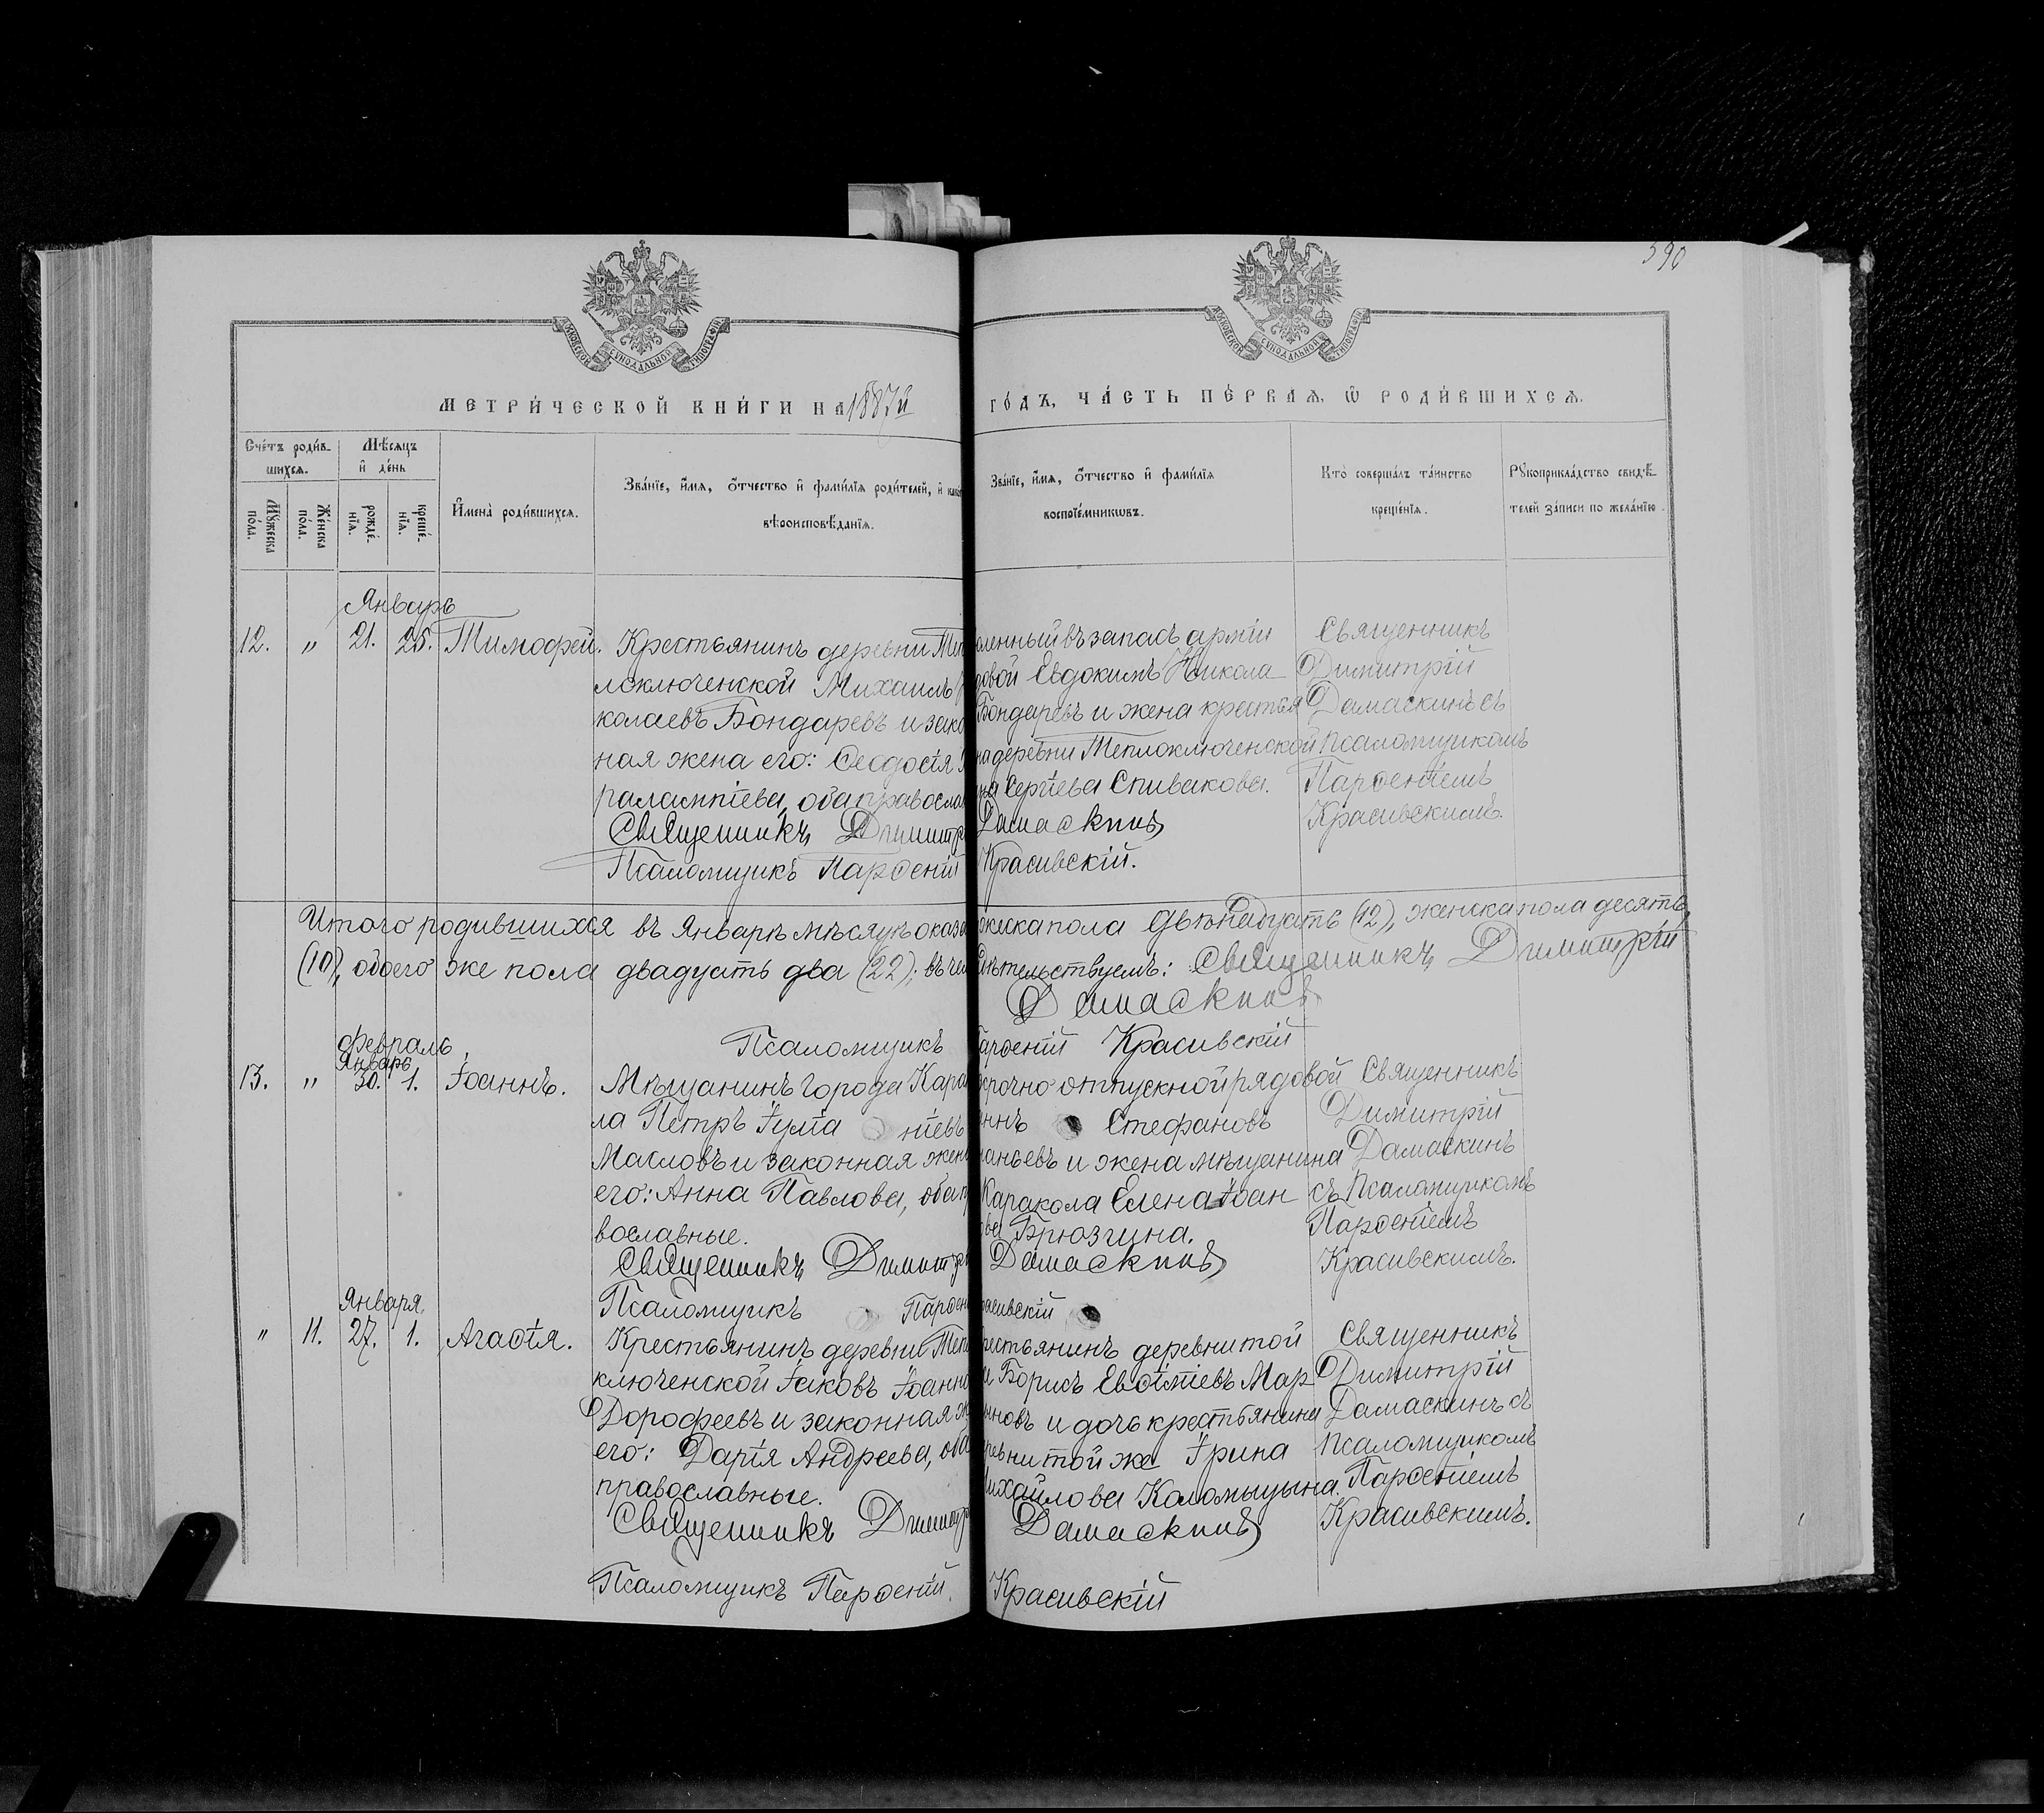 590
МОСКОВСКОЙ СѴНОДАЛЬНОЙ ТИПОГРАФІИ
МОСКОВСКОЙ СѴНОДАЛЬНОЙ ТИПОГРАФІИ
МЕТРИ́ЧЕСКОЙ КНИ́ГИ НА 1887й ГО́ДЪ, ЧА́СТЬ ПЕ́РВАѦ, Ѡ РОДИ́ВШИХСѦ.
Сче́тъ роди́вшихсѧ.
Мꙋ́жеска по́ла.
Же́нска по́ла.
Мѣ́сѧцъ и де́нь
рожде́нїѧ.
креще́нїѧ.
Имена̀ роди́вшихсѧ.
Зва́нїе, и́мѧ, о́тчество и фами́лїѧ роди́телей, и
вѣроисповѣ́данїѧ.
Зва́нїе, и́мѧ, о́тчество и фами́лїѧ
воспрїе́мникѡвъ.
Кто̀ соверша́лъ та́инство
креще́нїѧ.
Рꙋкоприкла́дство свидѣ́телей за́писи по жела́нїю.
Январь
12. " 21. 25. Тимофей.
Крестьянинъ деревни Теп
лоключенской Михаилъ
колаевъ Бондаревъ и зако
ная жена его: Ѳеодосія
рампіева, оба православ
Священникъ Димитр
Псаломщикъ Парѳеній
оленный въ запасъ арміи
довой Евдокимъ Никола
Бондаревъ и жена крестья
на деревни Теплоключенской
Сергіева Спивакова.
Дамаскинъ
Красивскій.
Священникъ
Димитрій
Дамаскинъ съ
псаломщикомъ
Парѳеніемъ
Красивскимъ.
Итого родившихся въ Январѣ мѣсяцѣ оказа жеска пола двѣнадцать (12), женска пола десять
(10), обоего же пола двадцать два (22); въ чем дѣтельствуемъ: Священникъ Димитрій
Дамаскинъ
Псаломщикъ Парѳеній Красивскій
Февраль
Январь
13. " 30. 1. Іоаннъ.
Мѣщанинъ города Карак
ла Петръ Іуліа ніевъ
Масловъ и законная жена
его: Анна Павлова, оба пр
вославные.
Священникъ Димитрі
Псаломщикъ Парѳені
срочно отпускной рядовой
аннъ Стефановъ
наньевъ и жена мѣщанина
Каракола Елена Іоан
ова Брюзгина.
Дамаскинъ
расивскій
Священникъ
Димитрій
Дамаскинъ
съ псаломщикомъ
Парѳеніемъ
Красивскимъ.
Января,
" 11. 27. 1. Агаѳія.
Крестьянинъ деревни Тепл
ключенской Іаковъ Іоанно
Дорофеевъ и законная ж
его: Дарія Андреева, оба
православные.
Священникъ Димитр
Псаломщикъ Парѳеній
рестьянинъ деревни той
Борисъ Евѳиміевъ Мар
новъ и дочь крестьянина
ревни той же Ирина
Михайлова Коломыцына.
Дамаскинъ
Красивскій
Священникъ
Димитрій
Дамаскинъ съ
псаломщикомъ
Парѳеніемъ
Красивскимъ.